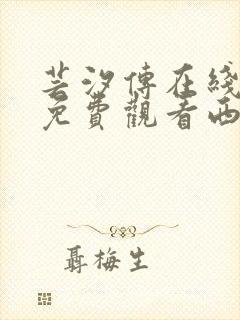 芸汐傳在綫
免費觀看西
聶梅生